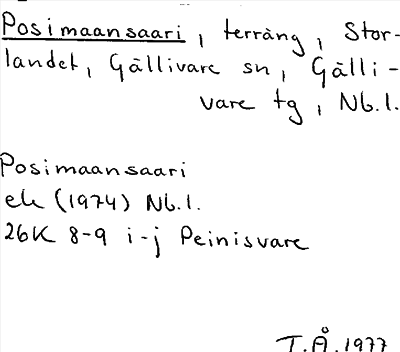 Posimaansaari, terräng, Stor-
landet, Gällivare sn, Gälli-
vare tg, Nb.l.
Posimaansaari
ek (1974) Nb.l.
26K 8-9 i-j Peinisvare
T.Å. 1977